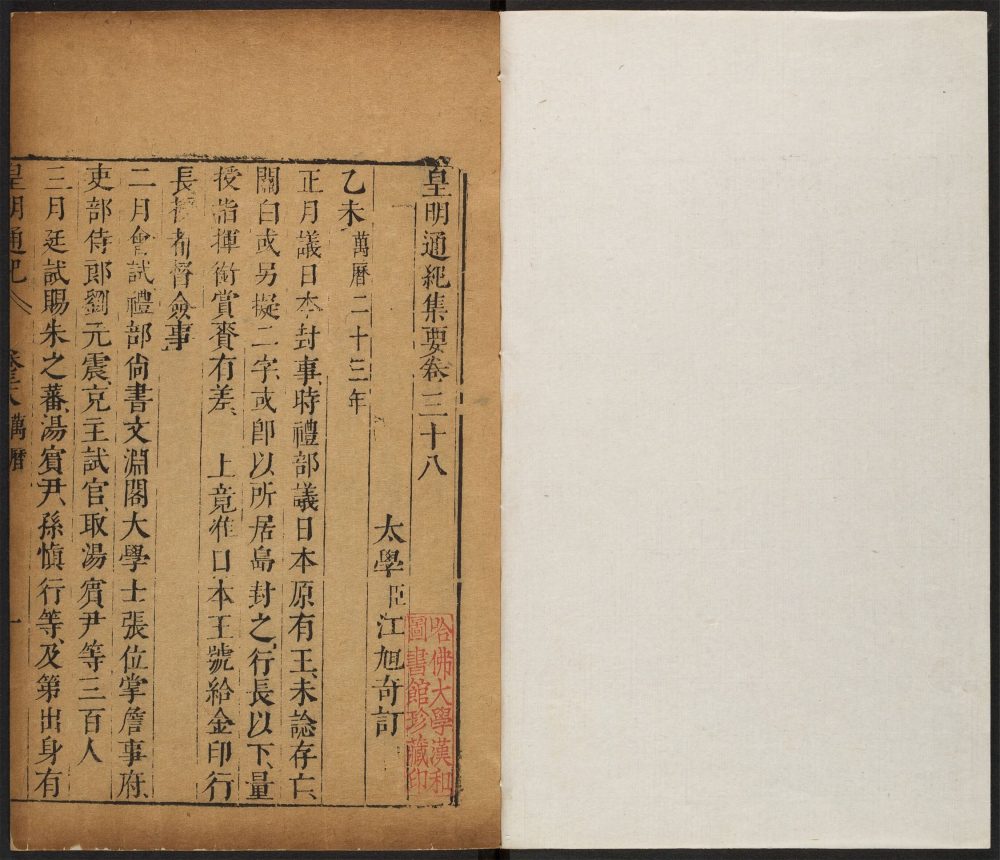 皇明通紀集要卷三十八
太學臣江旭奇訂
哈佛大學漢和
圖書館珍藏印
乙未萬曆二十三年
正月議日本封事、時禮部議日本原有王、未諗存亡、
關白或另擬二字、或即以所居島封之、行長以下、量
授指揮銜賞賚有差、 上竟准日本王號給金印行
長授都督僉事、
二月會試禮部尚書文淵閣大學士張位掌詹事府、
吏部侍郎劉元震、充主試官、取湯賓尹等三百人
三月廷試賜朱之蕃、湯賓尹、孫慎行等、及第出身有
皇明通紀 卷三十八 萬曆 一